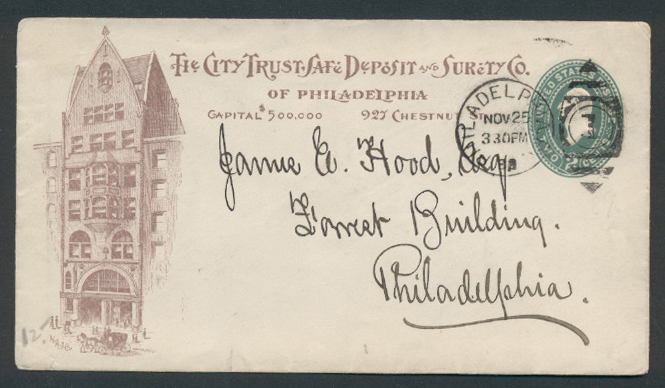 The City Trust Safe Deposit and Surety Co.
OF PHILADELPHIA
CAPITAL $500,000 927 CHESTNUT
PHILADELP
NOV 25
330PM
UNITED STATES
TWO
Hood, Esq
Forrest Building.
Philadelphia.
12.